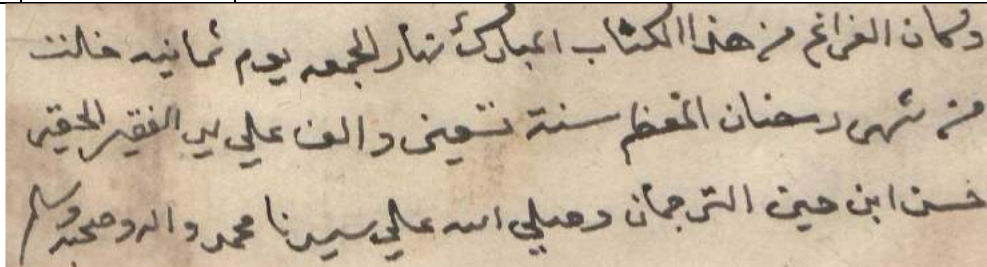 وكان الفراغ من هذا الكتاب المبارك نهار الجمعه يوم ثمانيه خلت
من شهر رمضان المعظم سنة تسعين والف علي يد الفقير الحقير
حسن ابن حسن الترجمان وصلي الله علي سيدنا محمد واله وصحبه وسلم